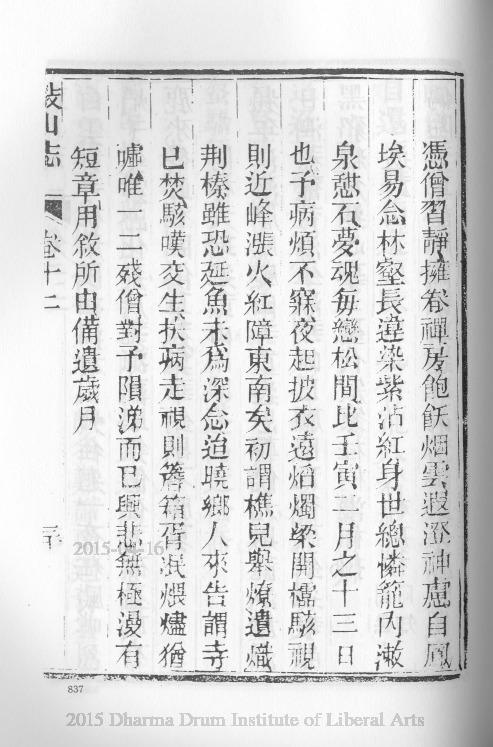 憑僧習靜擁卷禪房飽飫烟雲遐澄神慮自風
埃易念林壑長違染紫沾紅身世總憐籠內漱
泉憩石夢魂每戀松間比壬寅二月之十三日
也予病煩不寐夜起披衣遠焰燭梁開櫺駭視
則近峰漲火紅障東南矣初謂樵兒舉燎遺熾
荆榛雖恐延魚未為深念迨曉鄉人來告謂寺
巳焚駭嘆交生扶病走視則簷箱胥泯煨燼猶
噓唯一二殘僧對予隕涕而巳興悲無極漫有
短章用敘所由備遺歲月
鼓山志
卷十二
2015-04-16
837
2015 Dharma Drum Institute of Liberal Arts